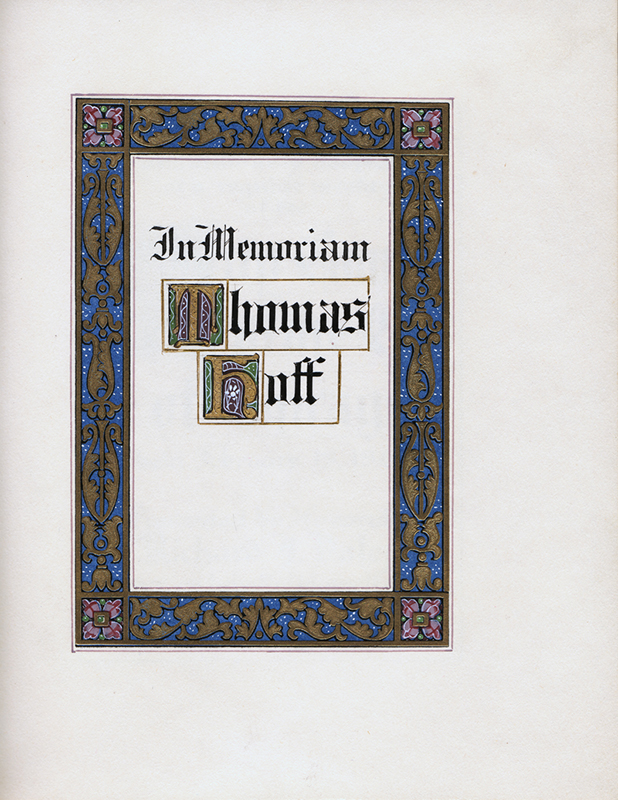 In Memoriam
Thomas
Hoff